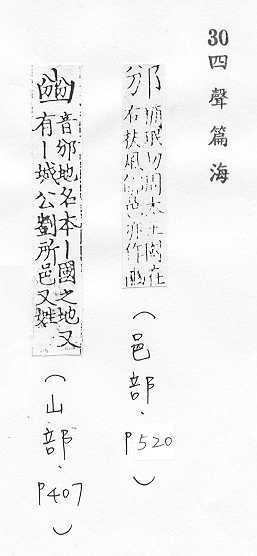 30四聲篇海
邠 珉切周太王國在
右扶風邑亦作豳
（邑部、P520）
豳 音邠地名本丨國之地又
有丨城公劉所邑又姓
（山部、P407）